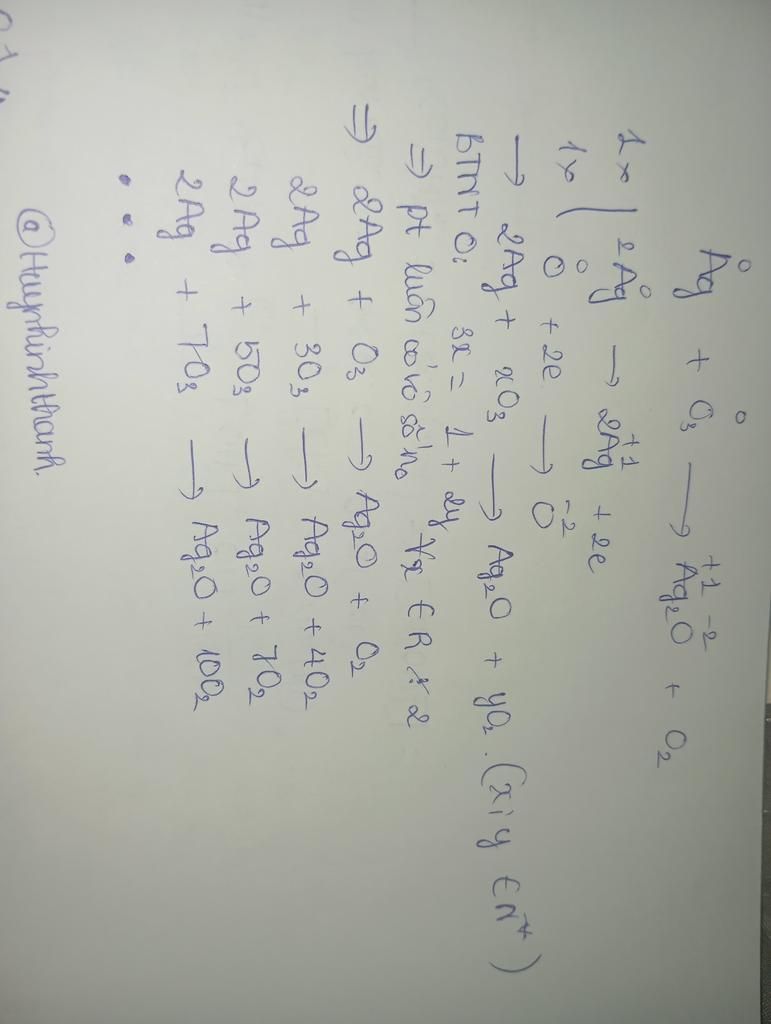 Ag⁰ + O₃⁰ → Ag₂⁺¹O⁻² + O₂
1x | 2Ag⁰ → 2Ag⁺¹ + 2e
1x | O⁰ + 2e → O⁻²
→ 2Ag + xO₃ → Ag₂O + yO₂. (x; y ∈ N*)
BTNT O: 3x = 1 + 2y
⇒ pt luôn có vô số n₀ ∀x ∈ R ⋮̸ 2
⇒ 2Ag + O₃ → Ag₂O + O₂
2Ag + 3O₃ → Ag₂O + 4O₂
2Ag + 5O₃ → Ag₂O + 7O₂
2Ag + 7O₃ → Ag₂O + 10O₂
• • •
@Huynhinhthanh.